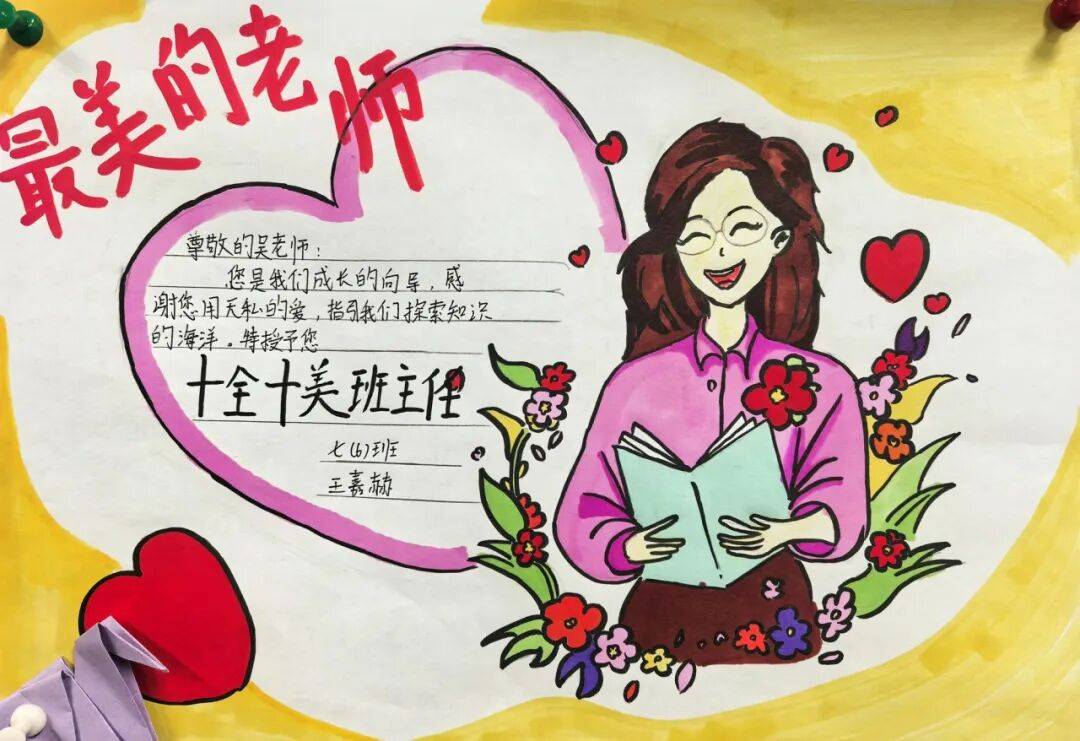 最美的老师
尊敬的吴老师：
您是我们成长的向导，感
谢您用无私的爱，指引我们探索知识
的海洋。特授予您
十全十美班主任
七（6）班
王嘉赫